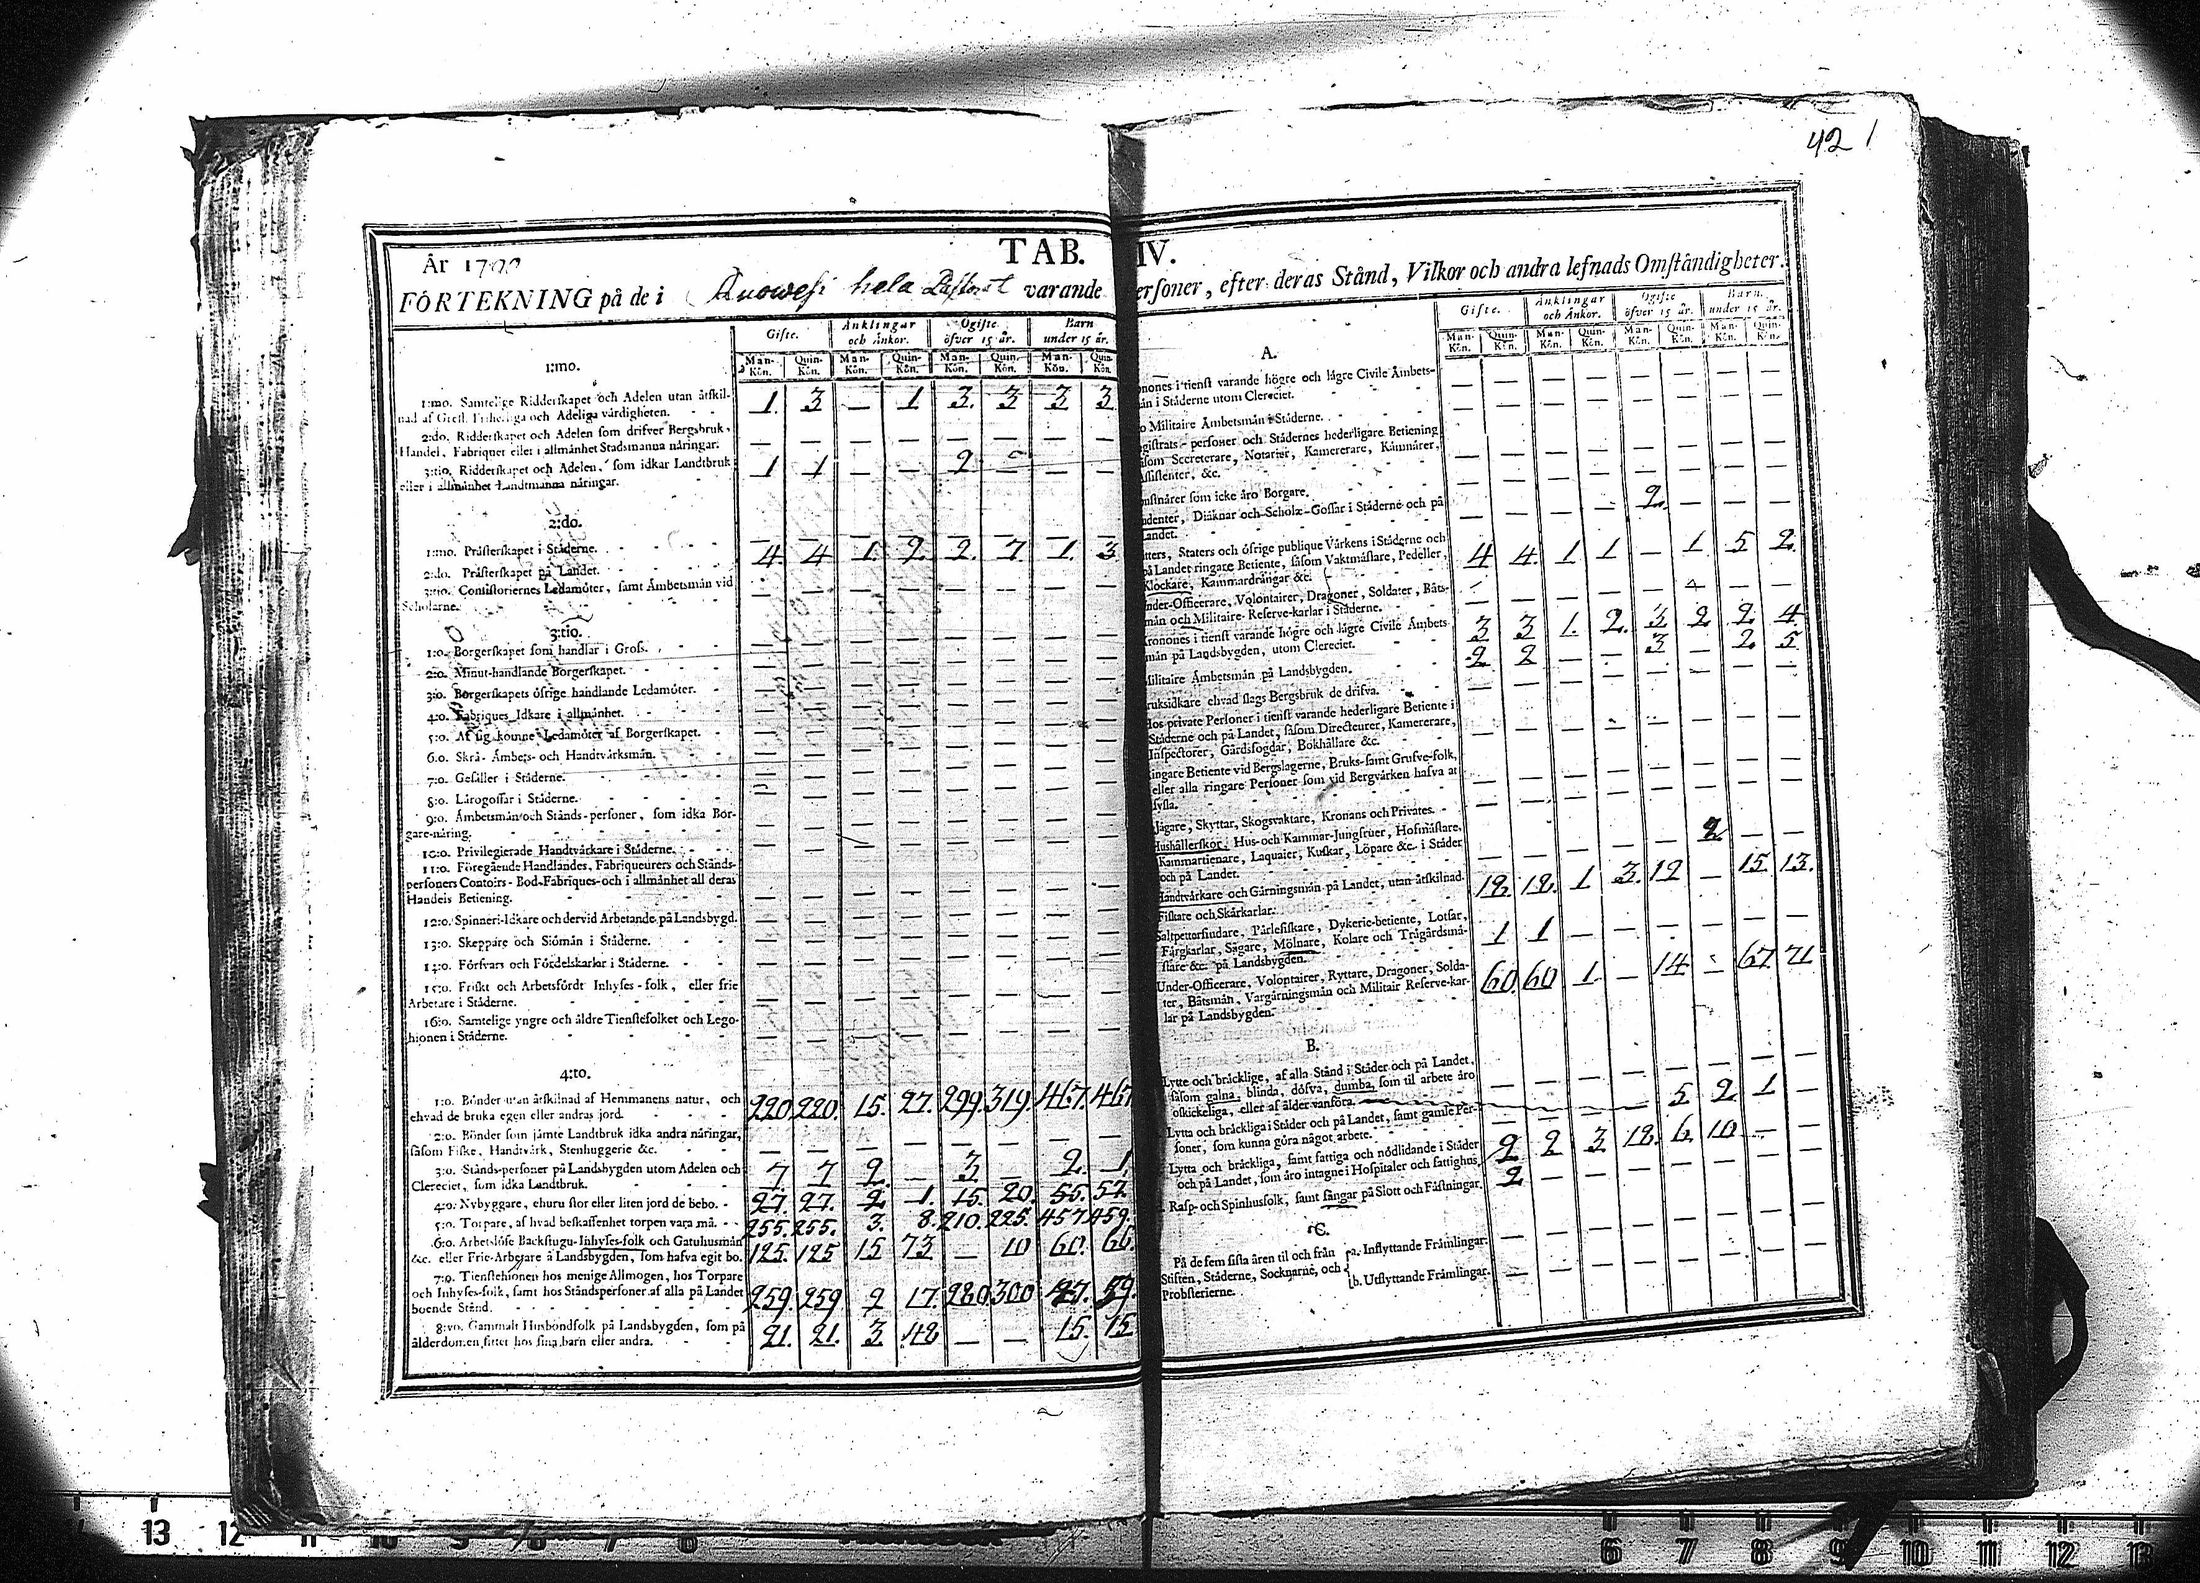 42
TAB. IV.
År 1790
FÖRTEKNING på de i hela varande Personer, efter deras Stånd, Vilkor och andra lefnads Omständigheter.
Gifte. Änklingar och Änkor. Ogifte öfver 15 år. Barn under 15 år.
Man-Kön. Quin-Kön. Man-Kön. Quin-Kön. Man-Kön. Quin-Kön. Man-Kön. Quin-Kön.
1:mo.
1:mo. Samtelige Ridderskapet och Adelen utan åtskil-
nad af Grefl. Friherrliga och Adeliga värdigheten. 1. 3 — 1 3. 3 3 3
2:do. Ridderskapet och Adelen som drifver Bergsbruk,
Handel, Fabriquer eller i allmänhet Stadsmanna näringar. — — — — — — — —
3:tio. Ridderskapet och Adelen, som idkar Landtbruk
eller i allmänhet Landtmanna näringar. 1 1 — — 2 — — —
2:do.
1:mo. Prästerskapet i Städerne. — — — — — — — —
2:do. Prästerskapet på Landet. 4. 4 1. 2. 2. 7 1. 3
3:tio. Consistoriernes Ledamöter, samt Ämbetsmän vid
Scholarne. — — — — — — — —
3:tio.
1:o. Borgerskapet som handlar i Gross. — — — — — — — —
2:o. Minut-handlande Borgerskapet. — — — — — — — —
3:o. Borgerskapets öfrige handlande Ledamöter. — — — — — — — —
4:o. Fabriques Idkare i allmänhet. — — — — — — — —
5:o. Af sig komne Ledamöter af Borgerskapet. — — — — — — — —
6:o. Skrå- Ämbets- och Handtvärksmän. — — — — — — — —
7:o. Gesäller i Städerne. — — — — — — — —
8:o. Lärogossar i Städerne. — — — — — — — —
9:o. Ämbetsmän och Stånds-personer, som idka Bor-
gare-näring. — — — — — — — —
10:o. Privilegierade Handtvärkare i Städerne. — — — — — — — —
11:o. Föregående Handlandes, Fabriqueurers och Stånds-
personers Contoirs - Bod-Fabriques- och i allmänhet all deras
Handels Betiening. — — — — — — — —
12:o. Spinneri-Idkare och dervid Arbetande på Landsbygd. — — — — — — — —
13:o. Skeppare och Siömän i Städerne. — — — — — — — —
14:o. Försvars och Fördelskarlar i Städerne. — — — — — — — —
15:o. Friskt och Arbetsfördt Inhyses-folk, eller frie
Arbetare i Städerne. — — — — — — — —
16:o. Samtelige yngre och äldre Tienstefolket och Lego-
hionen i Städerne. — — — — — — — —
4:to.
1:o. Bönder utan åtskilnad af Hemmanens natur, och
ehvad de bruka egen eller andras jord. 220 220. 15. 27. 299. 319. 467. 467
2:o. Bönder som jämte Landtbruk idka andra näringar,
såsom Fiske, Handtvärk, Stenhuggerie &c. — — — — — — — —
3:o. Stånds-personer på Landsbygden utom Adelen och
Clereciet, som idka Landtbruk. 7. 7 2. — 3. — 2. 1.
4:o. Nybyggare, ehuru stor eller liten jord de bebo. 27. 27. 2 1. 15. 20. 55. 57
5:o. Torpare, af hvad beskaffenhet torpen vara må. 255. 255. 3. 8. 210. 225. 457. 459.
6:o. Arbetslöse Backstugu-Inhyses-folk och Gatuhusmän
&c. eller Frie-Arbetare å Landsbygden, som hafva egit bo. 125. 125 15 73 — 10 60. 66.
7:o. Tienstehionen hos menige Allmogen, hos Torpare
och Inhyses-folk, samt hos Ståndspersoner af alla på Landet
boende Stånd. 259. 259 2 17. 280 300 47. 59.
8:vo. Gammalt Husbondfolk på Landsbygden, som på
ålderdomen sitter hos sina barn eller andra. 21. 21. 3 48 — — 15. 15
Gifte. Änklingar och Änkor. Ogifte öfver 15 år. Barn under 15 år.
Man-Kön. Quin-Kön. Man-Kön. Quin-Kön. Man-Kön. Quin-Kön. Man-Kön. Quin-Kön.
A.
Kronones i tienst varande högre och lägre Civile Ämbets-
män i Städerne utom Clereciet. — — — — — — — —
Militaire Ämbetsmän i Städerne. — — — — — — — —
Magistrats-personer och Städernes hederligare Betiening
såsom Secreterare, Notarier, Kamererare, Kämnärer,
Assistenter, &c. — — — — — — — —
Konstnärer som icke äro Borgare. — — — — — — — —
Studenter, Diäknar och Scholæ-Gossar i Städerne och på
Landet. — — — — — 2 — — —
Staters och öfrige publique Värkens i Städerne och
på Landet ringare Betiente, såsom Vaktmästare, Pedeller,
Klockare, Kammardrängar &c. 4 4. 1 1 — 1 5 2.
Under-Officerare, Volontairer, Dragoner, Soldater, Båts-
män och Militaire-Reserve-karlar i Städerne. — — — — — — — —
Kronones i tienst varande högre och lägre Civile Ämbets-
män på Landsbygden, utom Clereciet. 3 3 1. 2. 3 2 2 4.
Militaire Ämbetsmän på Landsbygden. 2 2 — — 3 — 2. 5
Bruksidkare ehvad slags Bergsbruk de drifva. — — — — — — — —
Hos private Personer i tienst varande hederligare Betiente i
Städerne och på Landet, såsom Directeurer, Kamererare,
Inspectorer, Gårdsfogdar, Bokhållare &c. — — — — — — — —
Ringare Betiente vid Bergslagerne, Bruks-samt Grufve-folk,
eller alla ringare Personer som vid Bergvärken hafva at
sysla. — — — — — — — —
Jägare, Skyttar, Skogsvaktare, Kronans och Privates. — — — — — — — —
Hushållerskor, Hus-och Kammar-Jungfruer, Hofmästare,
Kammartienare, Laquaier, Kuskar, Löpare &c. i Städer
och på Landet. — — — — — 2 — —
Handtvärkare och Gärningsmän på Landet, utan åtskilnad. 12. 12. 1 3. 12 — 15. 13.
Fiskare och Skärkarlar. — — — — — — — —
Saltpettersiudare, Pärlefiskare, Dykerie-betiente, Lotsar,
Färgkarlar, Sågare, Mölnare, Kolare och Trägårdsmä-
stare &c. på Landsbygden. 1 1 — — — — — —
Under-Officerare, Volontairer, Ryttare, Dragoner, Solda-
ter, Båtsmän, Vargärningsmän och Militair Reserve-kar-
lar på Landsbygden. 60. 60 1. — 14 — 67 71
B.
Lytte och bräcklige, af alla Stånd i Städer och på Landet,
såsom galna, blinda, döfva, dumba, som til arbete äro
oskickeliga, eller af ålder vanföra. — — — — 5 2 1 —
Lytta och bräckliga i Städer och på Landet, samt gamle Per-
soner, som kunna göra något arbete. 2 2 3 18. 6 10 — —
Lytta och bräckliga, samt fattiga och nödlidande i Städer
och på Landet, som äro intagne i Hospitaler och fattighus. 2
Rasp- och Spinhusfolk, samt fångar på Slott och Fästningar.
C.
På de fem sista åren til och från
Stiften, Städerne, Socknarne, och
Probsterierne.
a. Inflyttande Främlingar. — — — — — — — —
b. Utflyttande Främlingar. — — — — — — — —
13 12 11 10 9 8 7 6
6 7 8 9 10 11 12 13